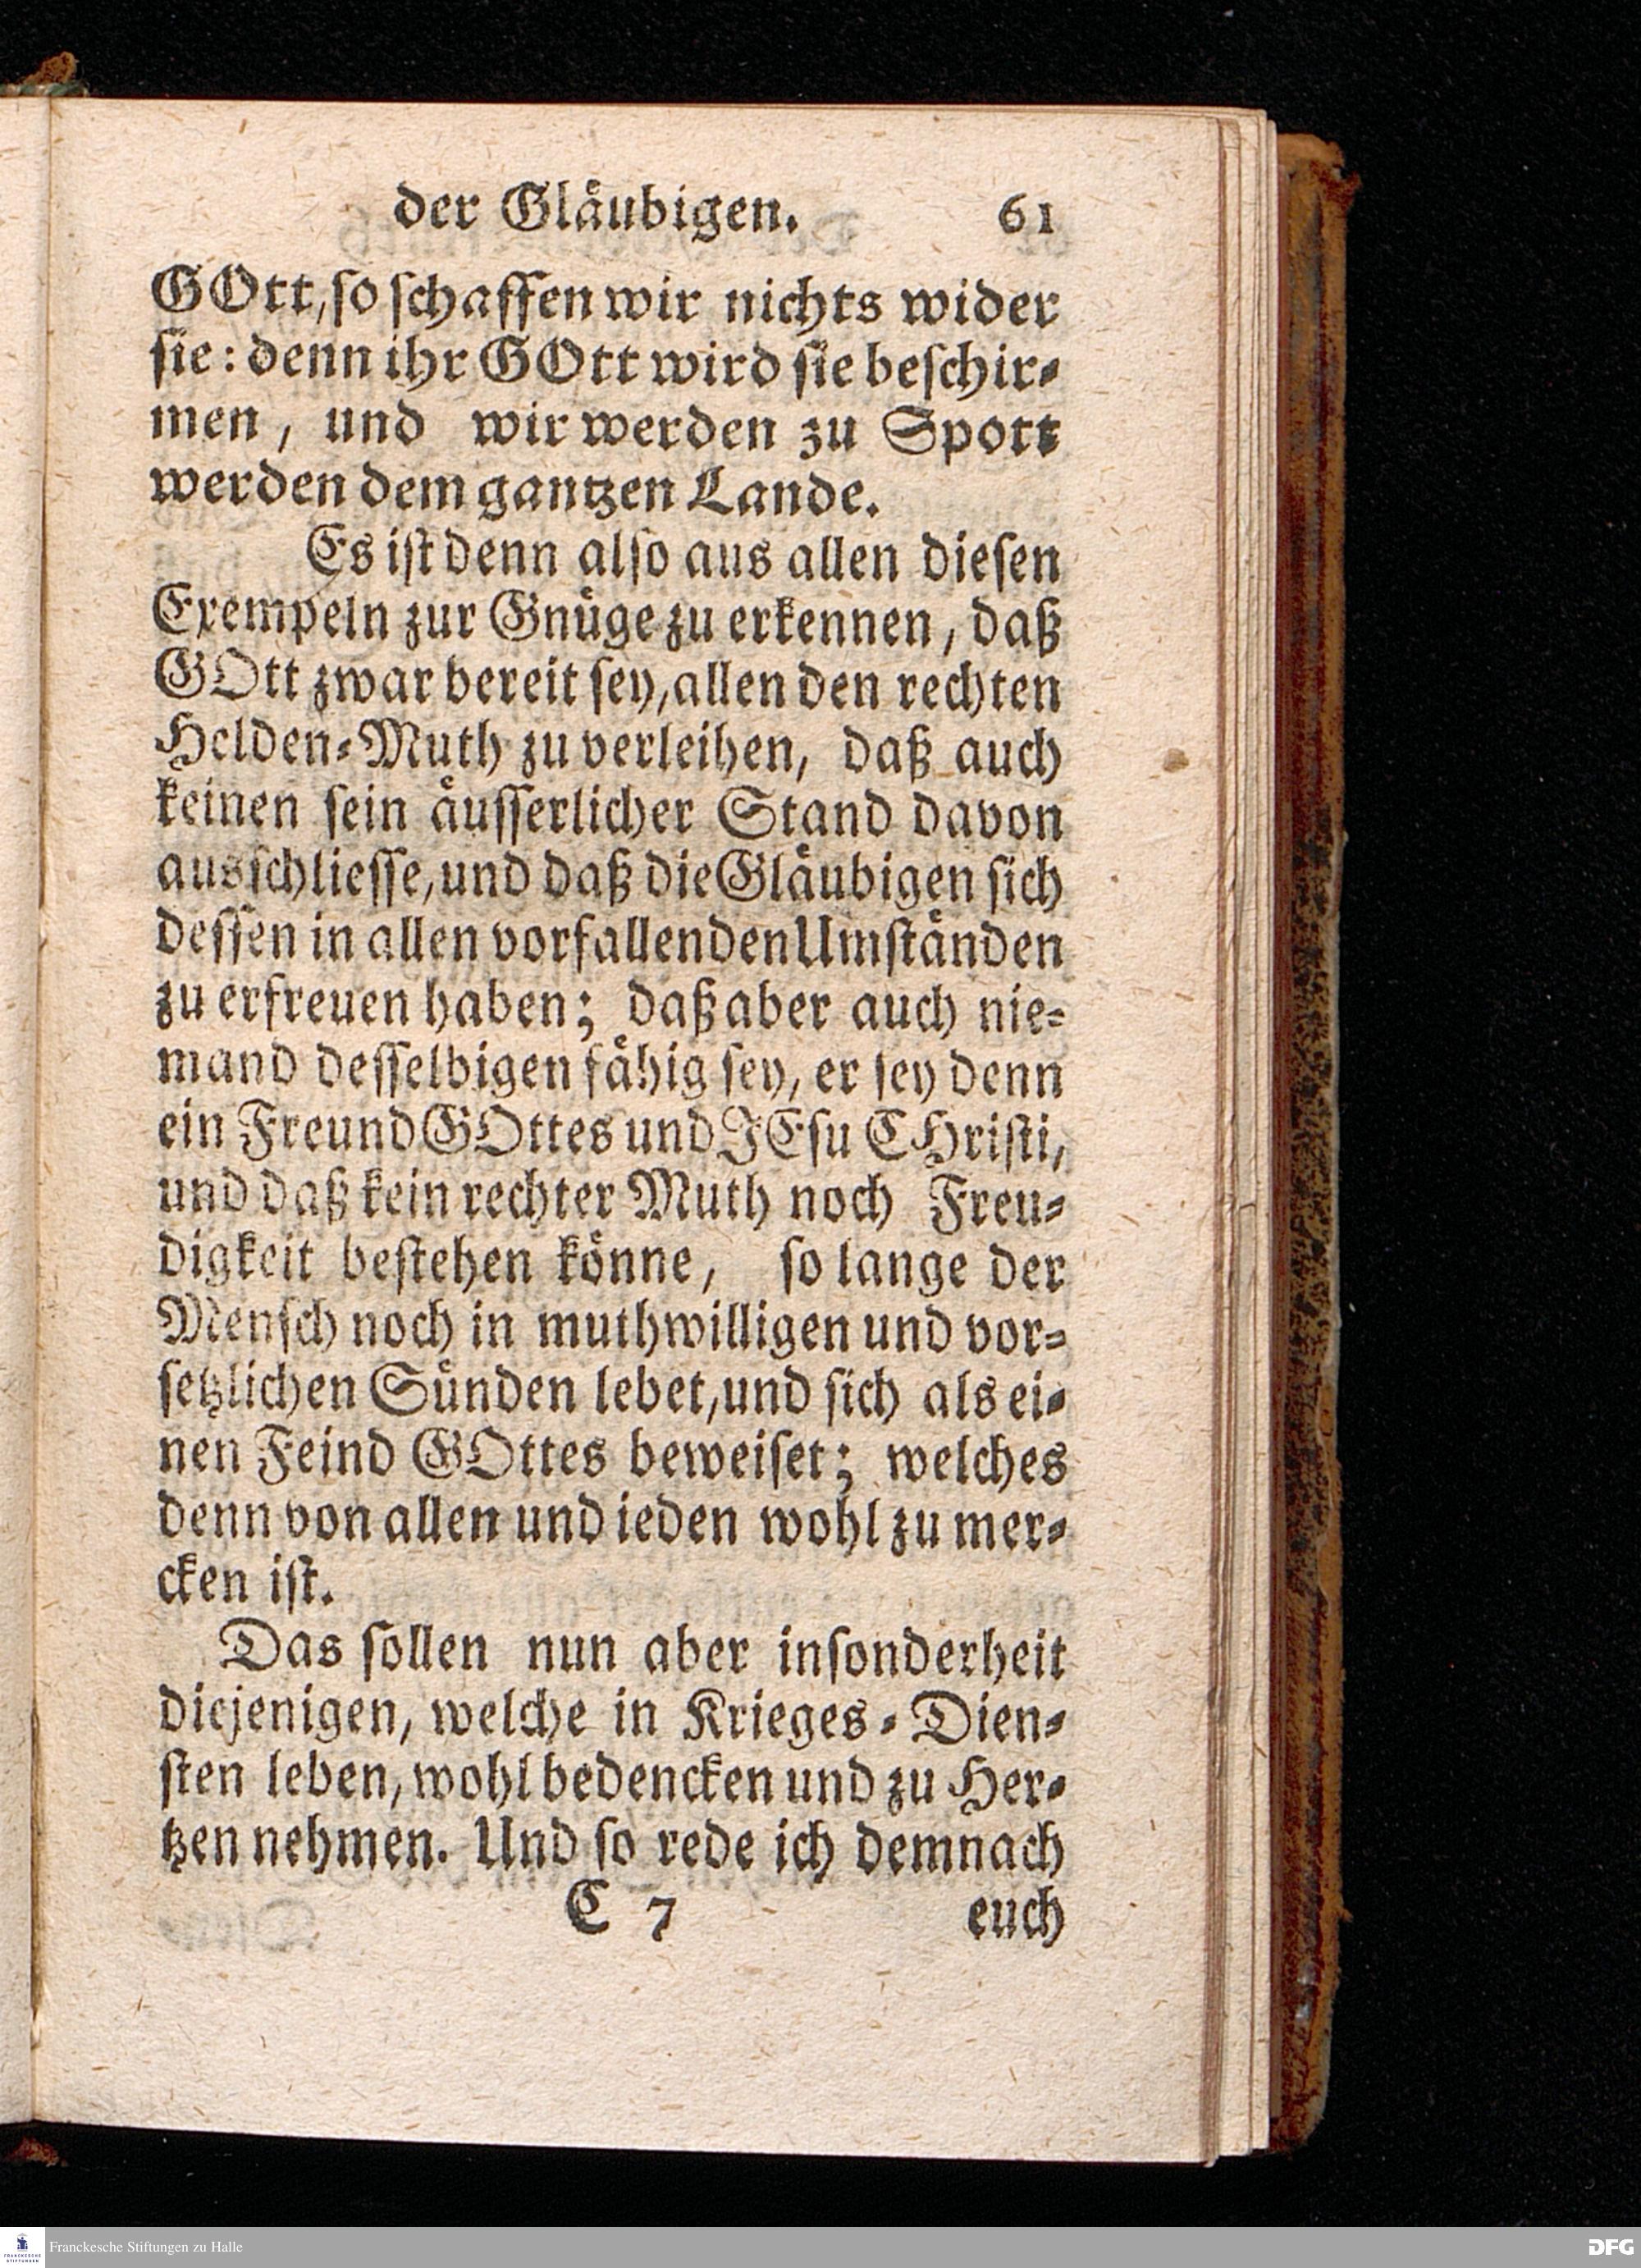 der Gläubigen. 61
GOtt, so schaffen wir nichts wider
sie: denn ihr GOtt wird sie beschir-
men, und wir werden zu Spott
werden dem gantzen Lande.
Es ist denn also aus allen diesen
Exempeln zur Gnüge zu erkennen, daß
GOtt zwar bereit sey, allen den rechten
Helden-Muth zu verleihen, daß auch
keinen sein äusserlicher Stand davon
ausschliesse, und daß die Gläubigen sich
dessen in allen vorfallenden Umständen
zu erfreuen haben; daß aber auch nie-
mand desselbigen fähig sey, er sey denn
ein Freund GOttes und JEsu CHristi,
und daß kein rechter Muth noch Freu-
digkeit bestehen könne, so lange der
Mensch noch in muthwilligen und vor-
setzlichen Sünden lebet, und sich als ei-
nen Feind GOttes beweiset; welches
denn von allen und ieden wohl zu mer-
cken ist.
Das sollen nun aber insonderheit
diejenigen, welche in Krieges-Dien-
sten leben, wohl bedencken und zu Her-
tzen nehmen. Und so rede ich demnach
C 7 euch
Franckesche Stiftungen zu Halle
FRANCKESCHE STIFTUNGEN
DFG